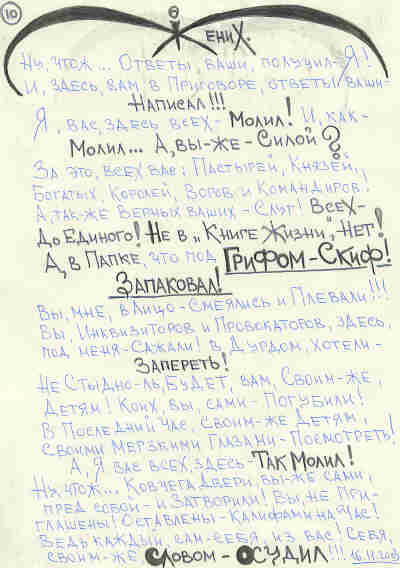 10
ениХ.
Ну, чтож... Ответы, ваши, получил-Я!
И, здесь, вам, в Приговоре, ответы, ваши-
Написал!!!
Я, вас, здесь всех- Молил! И, как-
Молил... А, вы-же-Силой?
За это, всех вас: Пастырей, Князей,
Богатых, Королей, Воров и Командиров!
А, так-же Верных ваших-Слуг! Всех-
До Единого! Не в "Книге Жизни",-Нет!
А, в Папке, что под Грифом-Скиф!
Запаковал!
Вы, мне, в Лицо-Смеялись и Плевали!!!
Вы, Инквизиторов и Провокаторов, здесь,
под меня-Сажали! В Дурдом, хотели-
Запереть!
Не Стыдно-ль, будет, вам, Своим-же,
Детям! Коих, вы, сами-Погубили!
В Последний Час, Своим-же Детям,
Своими Мерзкими Глазами-Посмотреть!
А, Я вас всех, здесь-Так Молил!
Ну, чтож... Ковчега Двери, вы-же сами,
пред собой-и Затворили! Вы, не При-
глашены! Оставлены-Калифами на Час!
Ведь каждый, сам-себя, из вас! Себя,
своим-же, Словом-Осудил!!! 16.11.2013